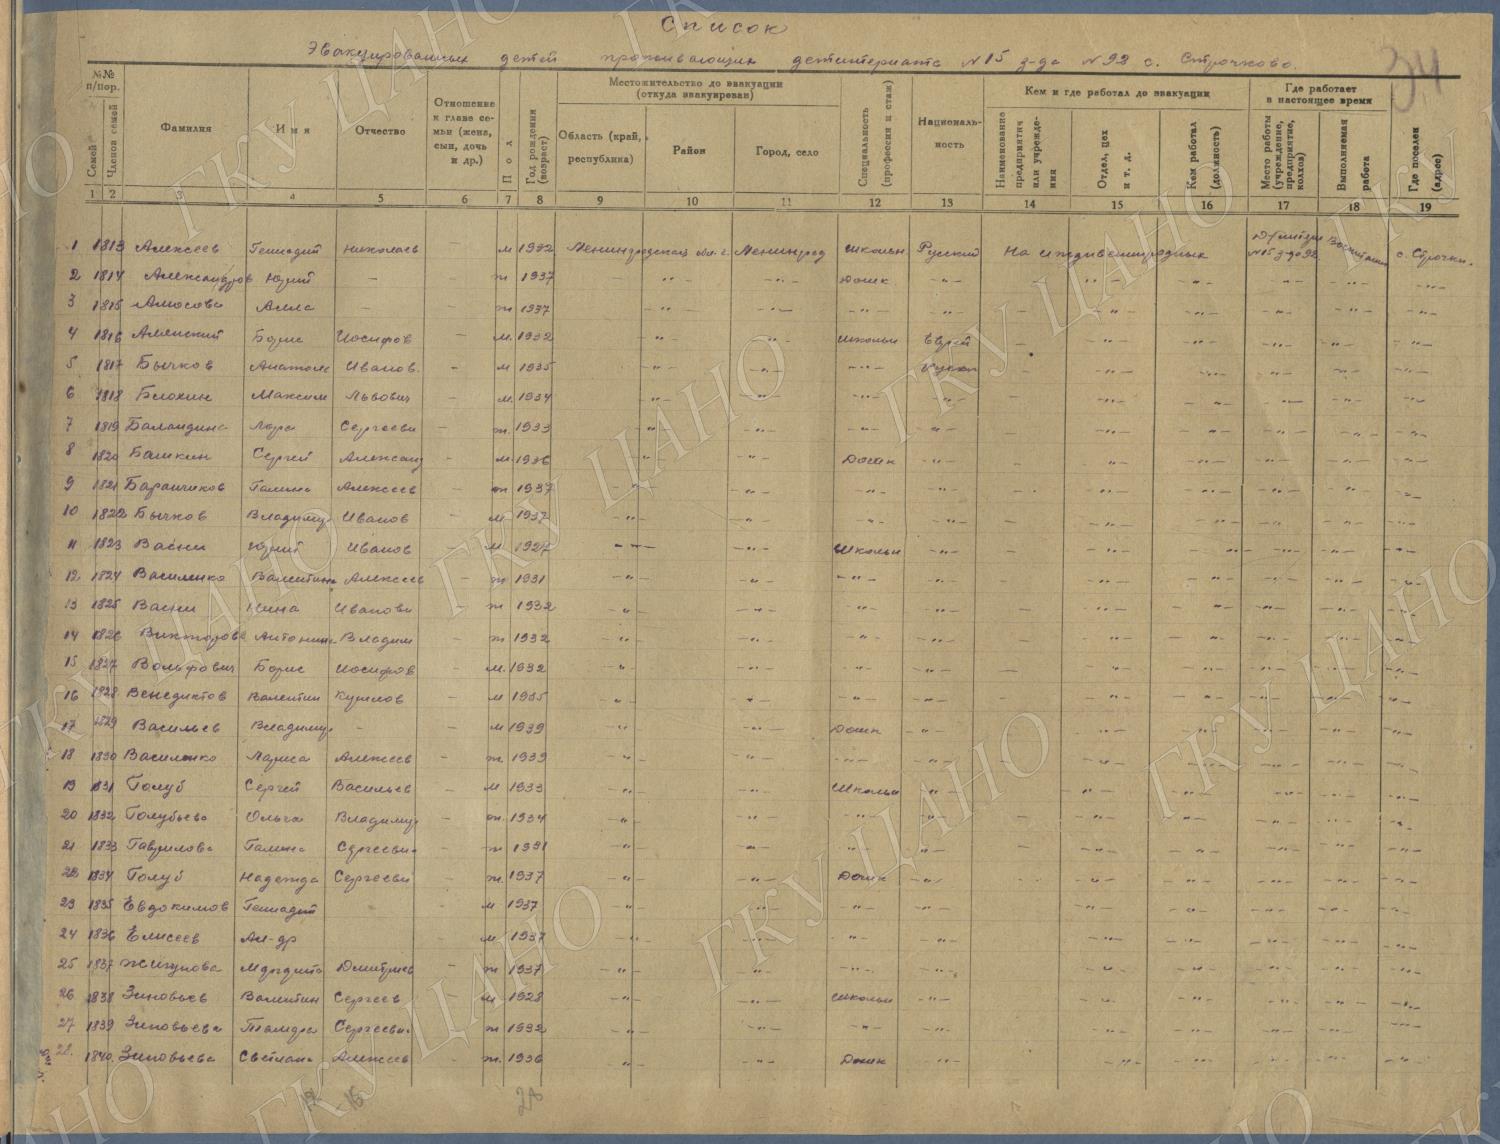 Список
Эвакуированных детей проживающих детинтерната №15 з-да №92 с. Строчково.
34
№№ п/пор.
Семей
Членов семей
Фамилия
Имя
Отчество
Отношение к главе семьи (жена, сын, дочь и др.)
Пол
Год рождения (возраст)
Местожительство до эвакуации (откуда эвакуирован)
Область (край, республика)
Район
Город, село
Специальность (профессия и стаж)
Националь-ность
Кем и где работал до эвакуации
Наименование предприятия или учреждения
Отдел, цех и т. д.
Кем работал (должность)
Где работает в настоящее время
Место работы (учреждение, предприятие, колхоз)
Выполняемая работа
Где поселен (адрес)
1 2 3 4 5 6 7 8 9 10 11 12 13 14 15 16 17 18 19
1 1813 Алексеев Геннадий Николаев — м 1932 Ленинградская Ленинград школьн Русский На иждивении родных №15 з-да 92 с. Строчк.
2 1814 Александров Юрий — ж 1937 —"— —"— Дошк —"—
3 1815 Амосова Алла — ж 1937 —"— —"— —"— —"—
4 1816 Борис Иосифов — м. 1932 —"— —"— школьн Еврей —"—
5 1817 Бычков Анатоли Иванов. - м 1935 —"— —"— —"— Русск —"—
6 1818 Блохин Максим Львович - м. 1934 —"—
7 1819 Баландина Лера Сергеевн - ж. 1933 —"—
8 1820 Башкин Сергей Александ - м 1936 —"— Дошк —"—
9 1821 Баранчиков Галина Алексеев — ж 1937 —"—
10 1822 Бычков Владимир Иванов — м 1937 —"—
11 1823 Васни Юрий Иванов — м 1927 —"— Школьн —"—
12. 1824 Василенко Валентина Алексеев — ж 1931 —"—
13 1825 Васни Нина Ивановн ж 1932 —"—
14 1826 Викторова Антонина Владим - ж 1932 —"—
15 1827 Вольфович Борис Иосифов - м. 1932 —"—
16 1828 Венедиктов Валентин — м 1935 —"—
17 1829 Васильев Владимир - — м 1939 —"— Дошк —"—
18 1830 Василенко Лариса Алексеев - ж 1939 —"—
19 1831 Голуб Сергей Васильев - м 1933 —"— Школьн —"—
20 1832 Голубьева Ольга Владимир - ж. 1934 —"—
21 1833 Гаврилова Галина Сергеевн. - ж 1931 —"—
22 1834 Голуб Надежда Сергеевн - ж. 1937 —"— Дошк —"—
23 1835 Евдокимов Геннадий м 1937 —"—
24 1836 Елисеев Ал-др м 1937 —"—
25 1837 Жигунова Дмитриев - ж 1937 —"—
26 1838 Зиновьев Валентин Сергеев - м 1928 —"— школьн —"—
27 1839 Зиновьева Тамара Сергеевн. - ж 1932 —"—
28. 1840. Зиновьева Светлана Алексеев - ж. 1936 —"— Дошк —"—
28
ГКУ ЦАНО